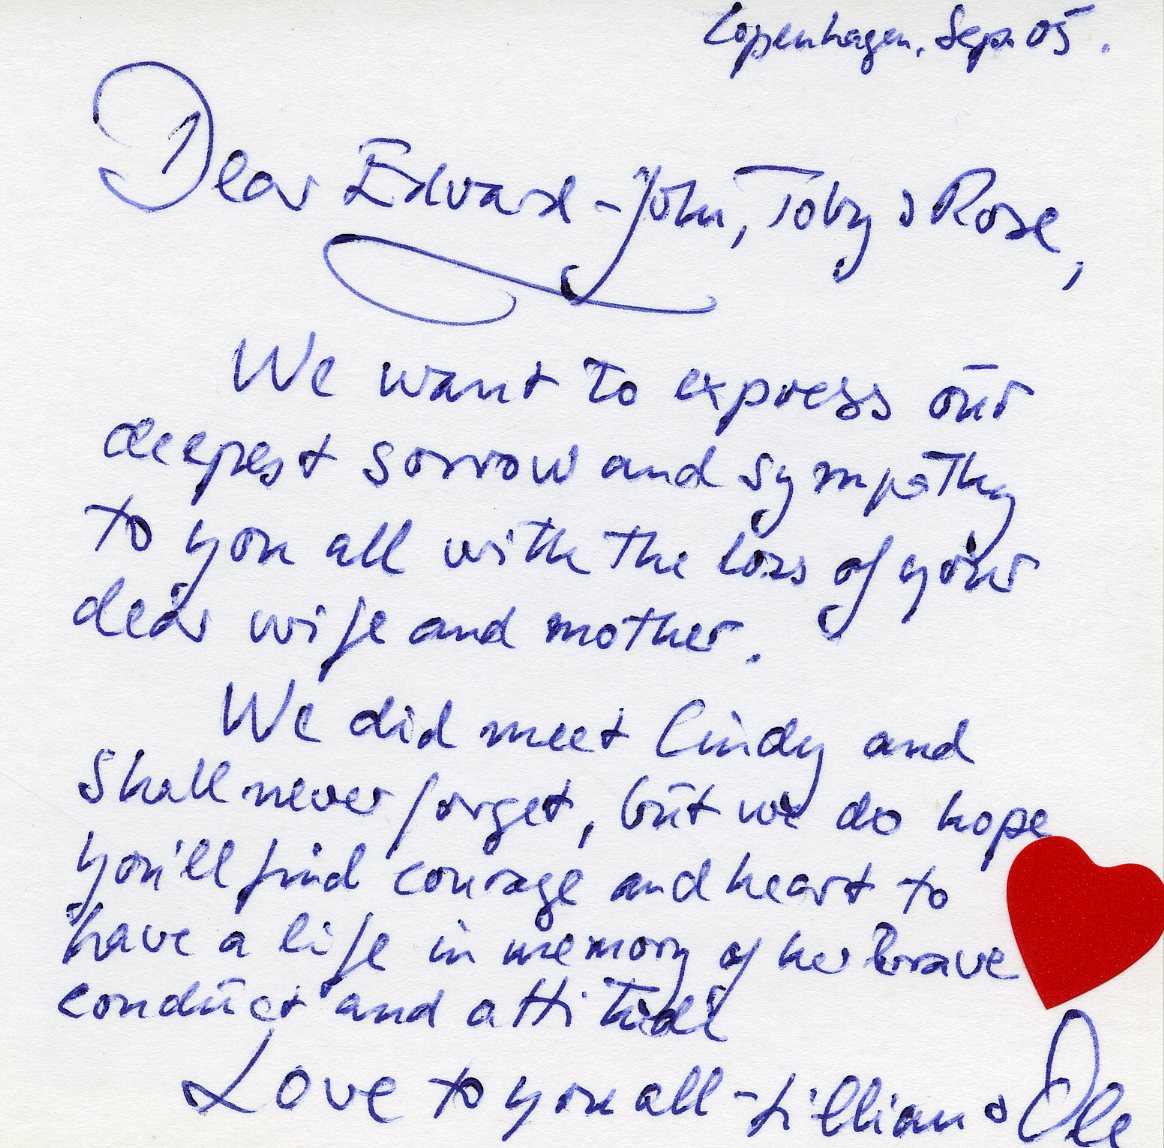 Copenhagen, Sep. 05.
Dear Edvard-John, Toby & Rose,
We want to express our
deepest sorrow and sympathy
to you all with the loss of your
dear wife and mother.
We did meet Cindy and
shall never forget, but we do hope
you'll find courage and heart to
have a life in memory of her brave
conduct and attitude
Love to you all - Lillian & Ole